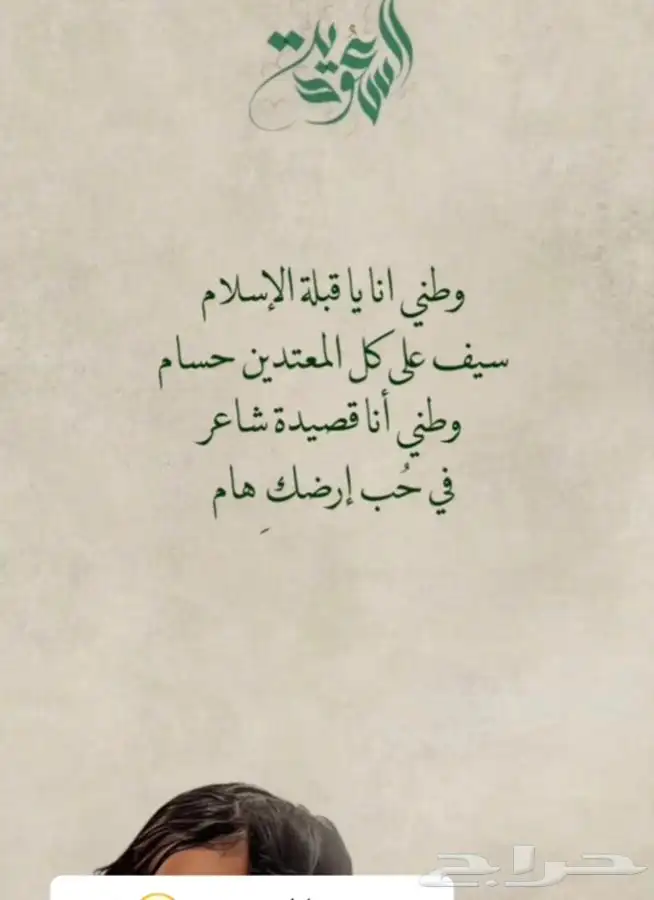 السعودية
وطني انا يا قبلة الإسلام
سيف على كل المعتدين حسام
وطني أنا قصيدة شاعر
في حُب إرضكِ هام
حراج